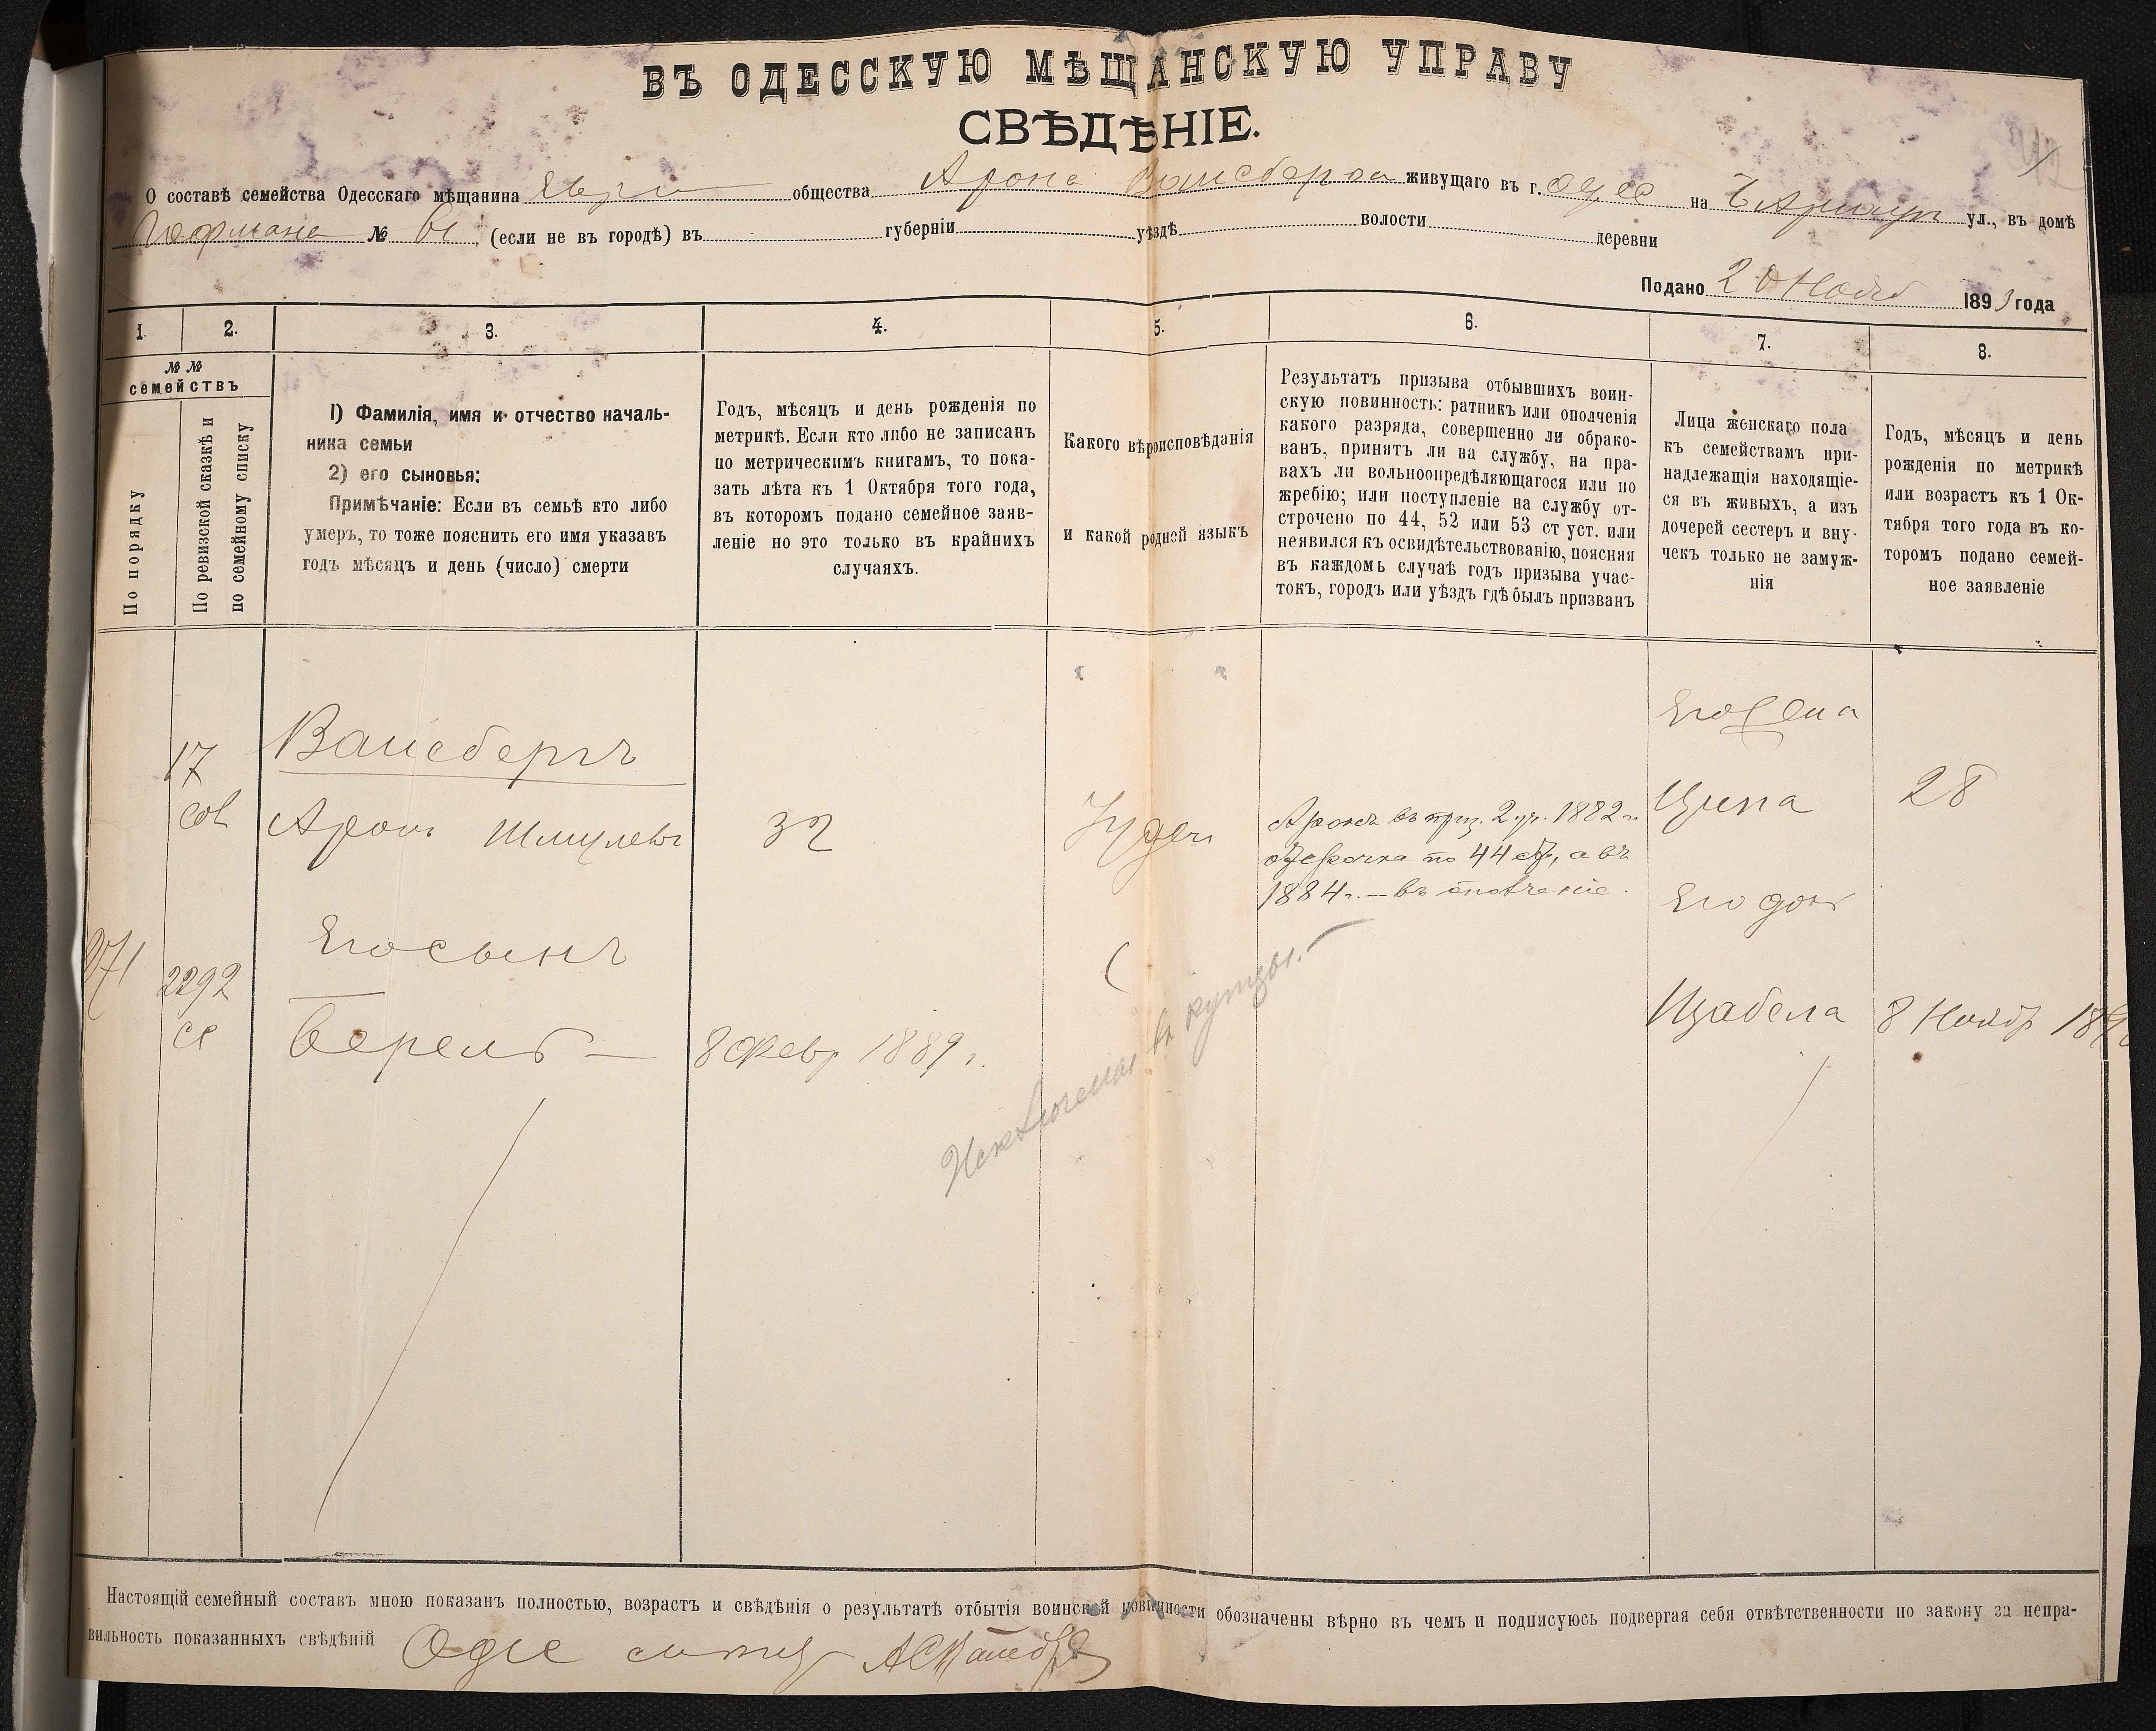 ВЪ ОДЕССКУЮ МѢЩАНСКУЮ УПРАВУ
СВѢДѢНІЕ.
О составѣ семейства Одесскаго мѣщанина общества Арона Вайсберга живущаго въ г. Одес на ул., въ домѣ
Гофмана № (если не въ городѣ) въ губерніи уѣздѣ волости деревни
Подано 20 Нояб 1893 года
1. 2. 3. 4. 5. 6. 7. 8.
№ №
семействъ
По порядку
По ревизской сказкѣ и
по семейному списку
1) Фамилія, имя и отчество началь-
ника семьи
2) его сыновья:
Примѣчаніе: Если въ семьѣ кто либо
умеръ, то тоже пояснить его имя указавъ
годъ мѣсяцъ и день (число) смерти
Годъ, мѣсяцъ и день рожденія по
метрикѣ. Если кто либо не записанъ
по метрическимъ книгамъ, то пока-
зать лѣта къ 1 Октября того года,
въ которомъ подано семейное заяв-
леніе но это только въ крайнихъ
случаяхъ.
Какого вѣроисповѣданія
и какой родной языкъ
Результатъ призыва отбывшихъ воин-
скую повинность: ратникъ или ополченія
какого разряда, совершенно ли обрако-
ванъ, принятъ ли на службу, на пра-
вахъ ли вольноопредѣляющагося или по
жребію; или поступленіе на службу от-
строчено по 44, 52 или 53 ст уст. или
неявился къ освидѣтельствованію, поясняя
въ каждомъ случаѣ годъ призыва учас-
токъ, городъ или уѣздъ гдѣ былъ призванъ
Лица женскаго пола
къ семействамъ при-
надлежащія находящіе-
ся въ живыхъ, а изъ
дочерей сестеръ и вну-
чекъ только не замуж-
нія
Годъ, мѣсяцъ и день
рожденія по метрикѣ
или возрастъ къ 1 Ок-
тября того года въ ко-
торомъ подано семей-
ное заявленіе
17
Вайсбергъ
Аронъ Шмулевъ
32
Іудей
Аронъ въ приз. 2 уч. 1882 г.
отсрочка по 44 ст, а въ
1884 г. — въ ополченіе.
Его жена
Ципа 28
Его доч
Изабела 8 Нояб
2292
Его сынъ
Берель — 8 Февр 1889 г.
Исключенъ въ купцы. —
Настоящій семейный составъ мною показанъ полностью, возрастъ и свѣдѣнія о результатѣ отбытія воинской повинности обозначены вѣрно въ чемъ и подписуюсь подвергая себя отвѣтственности по закону за непра-
вильность показанныхъ свѣдѣній